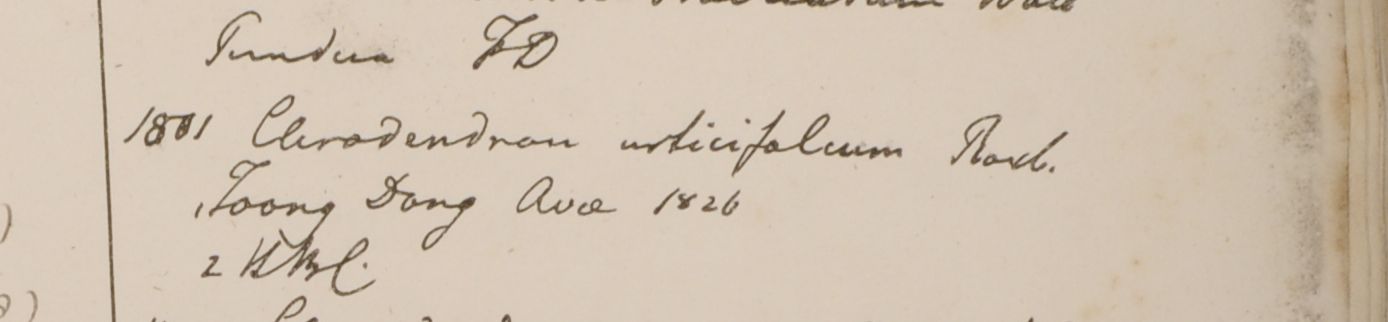 Wall
Tundua FD
1801 Clerodendron urticifolium Roxb.
Toong Dong Avae 1826
2 HBC.